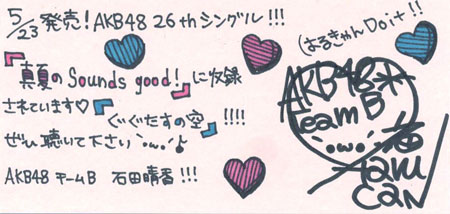 5/23 発売！AKB48 26thシングル!!!
『真夏のSounds good!』に収録
されています♡『ぐぐたすの空』!!!!
ぜひ聴いて下さい♪
AKB48 チームB 石田晴香!!!
(はるきゃんDoit!!
AKB48*
Team B
Haru
Can